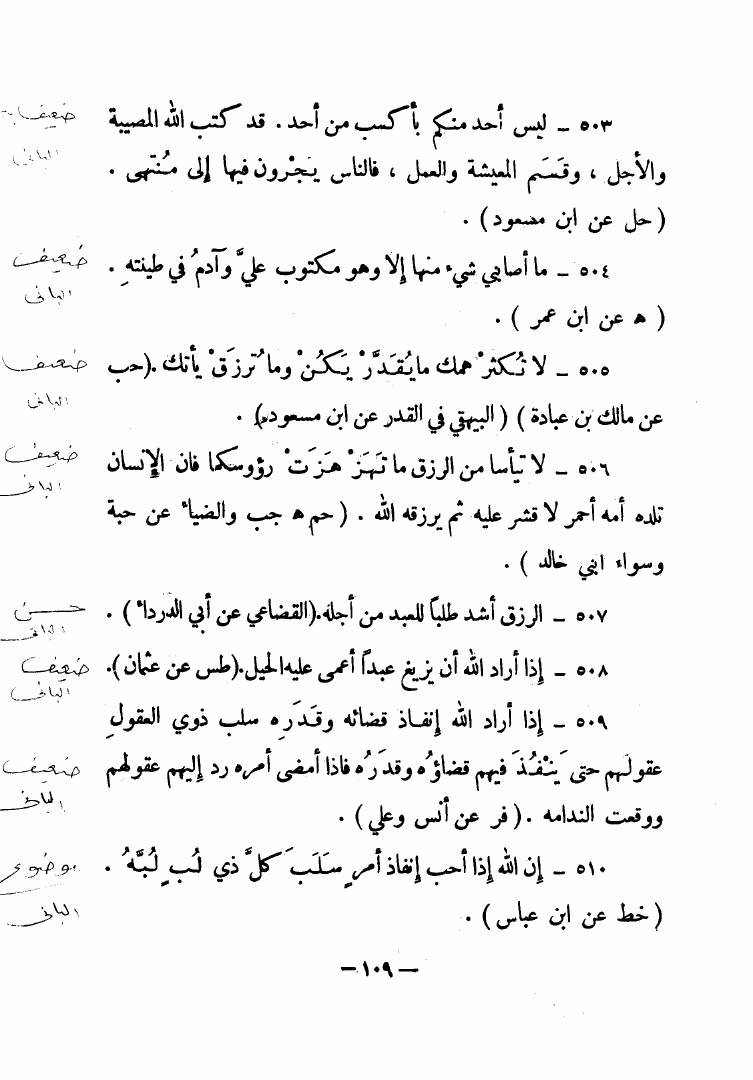 ٥٠٣ ـ ليس أحد منكم بأكسب من أحد. قد كتب الله المصيبة
ضعيف
الباني
والأجل ، وقَسَم المعيشة والعمل ، فالناس يَجْرون فيها إلى مُنتَهى .
( حل عن ابن مسعود) .
٥٠٤ ـ ما أصابني شيء منها إلا وهو مكتوب عليَّ وآدمُ في طينتهِ .
ضعيف
الباني
( ه عن ابن عمر ) .
٥٠٥ ـ لا تُكثرْ همك مايُقدَّرْ يَكُنْ وما تُرزَقْ يأتك .(حب
ضعيف
الباني
عن مالك بن عبادة ) ( البيهقي في القدر عن ابن مسعود) .
٥٠٦ ـ لا تيأسا من الرزق ما تَهَزْهَزَتْ رؤوسكما فان الإنسان
ضعيف
الباني
تلده أمه أحمر لا قشر عليه ثم يرزقه الله . ( حم ه حب والضياء عن حبة
وسواء ابني خالد ) .
٥٠٧ ـ الرزق أشد طلباً للعبد من أجله.(القضاعي عن أبي الدرداء ) .
حسن
الباني
٥٠٨ ـ إذا أراد الله أن يزيغ عبداً أعمى عليه الحيل.(طس عن عثمان ).
ضعيف
الباني
٥٠٩ ـ إذا أراد الله إنفاذ قضائه وقَدَره سلب ذوي العقولِ
عقولَهم حتى يَنْفُذَ فيهم قضاؤُه وقدَرُه فاذا أمضى أمره رد إليهم عقولهم
ضعيف
الباني
ووقعت الندامه . ( فر عن أنس وعلي ) .
٥١٠ ـ إن الله إذا أحب إنفاذ أمرٍ سَلَبَ كلَّ ذي لُبٍ لُبَّهُ .
موضوع
الباني
( خط عن ابن عباس ) .
ـ ١٠٩ ـ